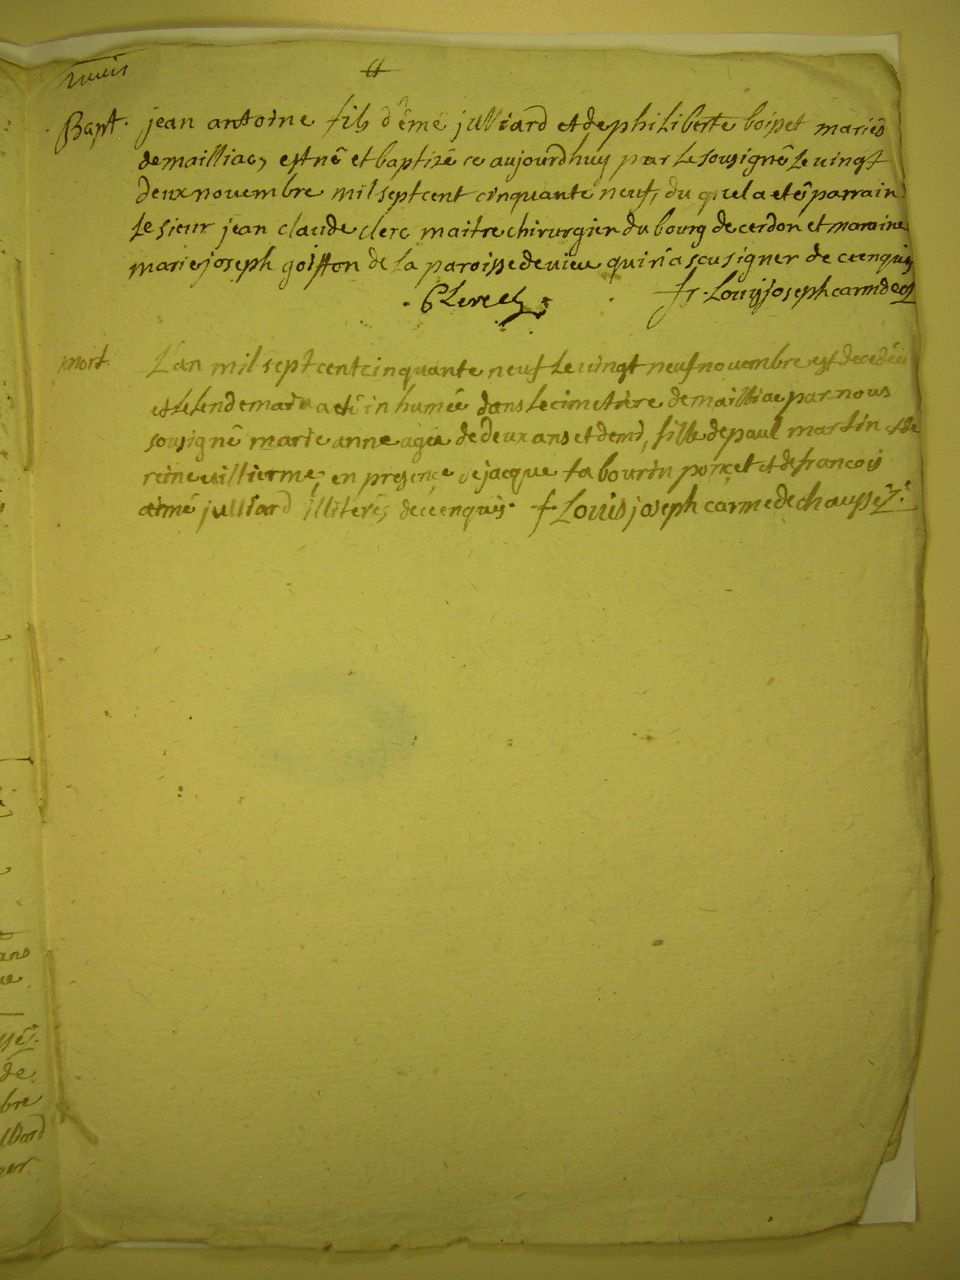 Bapt. jean antoine fils d'ême julliard et de philiberte boisset mariés
de mailliac, est né et baptizé ce aujourdhuy par le sousigné le vingt
deux novembre mil sept cent cinquante neuf, du quel a eté parrain
le sieur jean claude clerc maitre chirurgien du bourg de cerdon et maraine
marie joseph goiffon de la paroisse de vieu qui n'a scu signer de ce enquis
Clerc fr. Louis joseph carmde
mort. L'an mil sept cent cinquante neuf le vingt neuf novembre est decedée
et le lendemain a eté inhumée dans le cimetière de mailliac par nous
sousigné marie anne agée de deux ans et demi, fille de paul martin et de
reine villierme, en presence de jacque tabourin poncet et de francois
aimé julliard illiterés de ce enquis. f. Louis joseph carme dechaussé
ans
de
bre